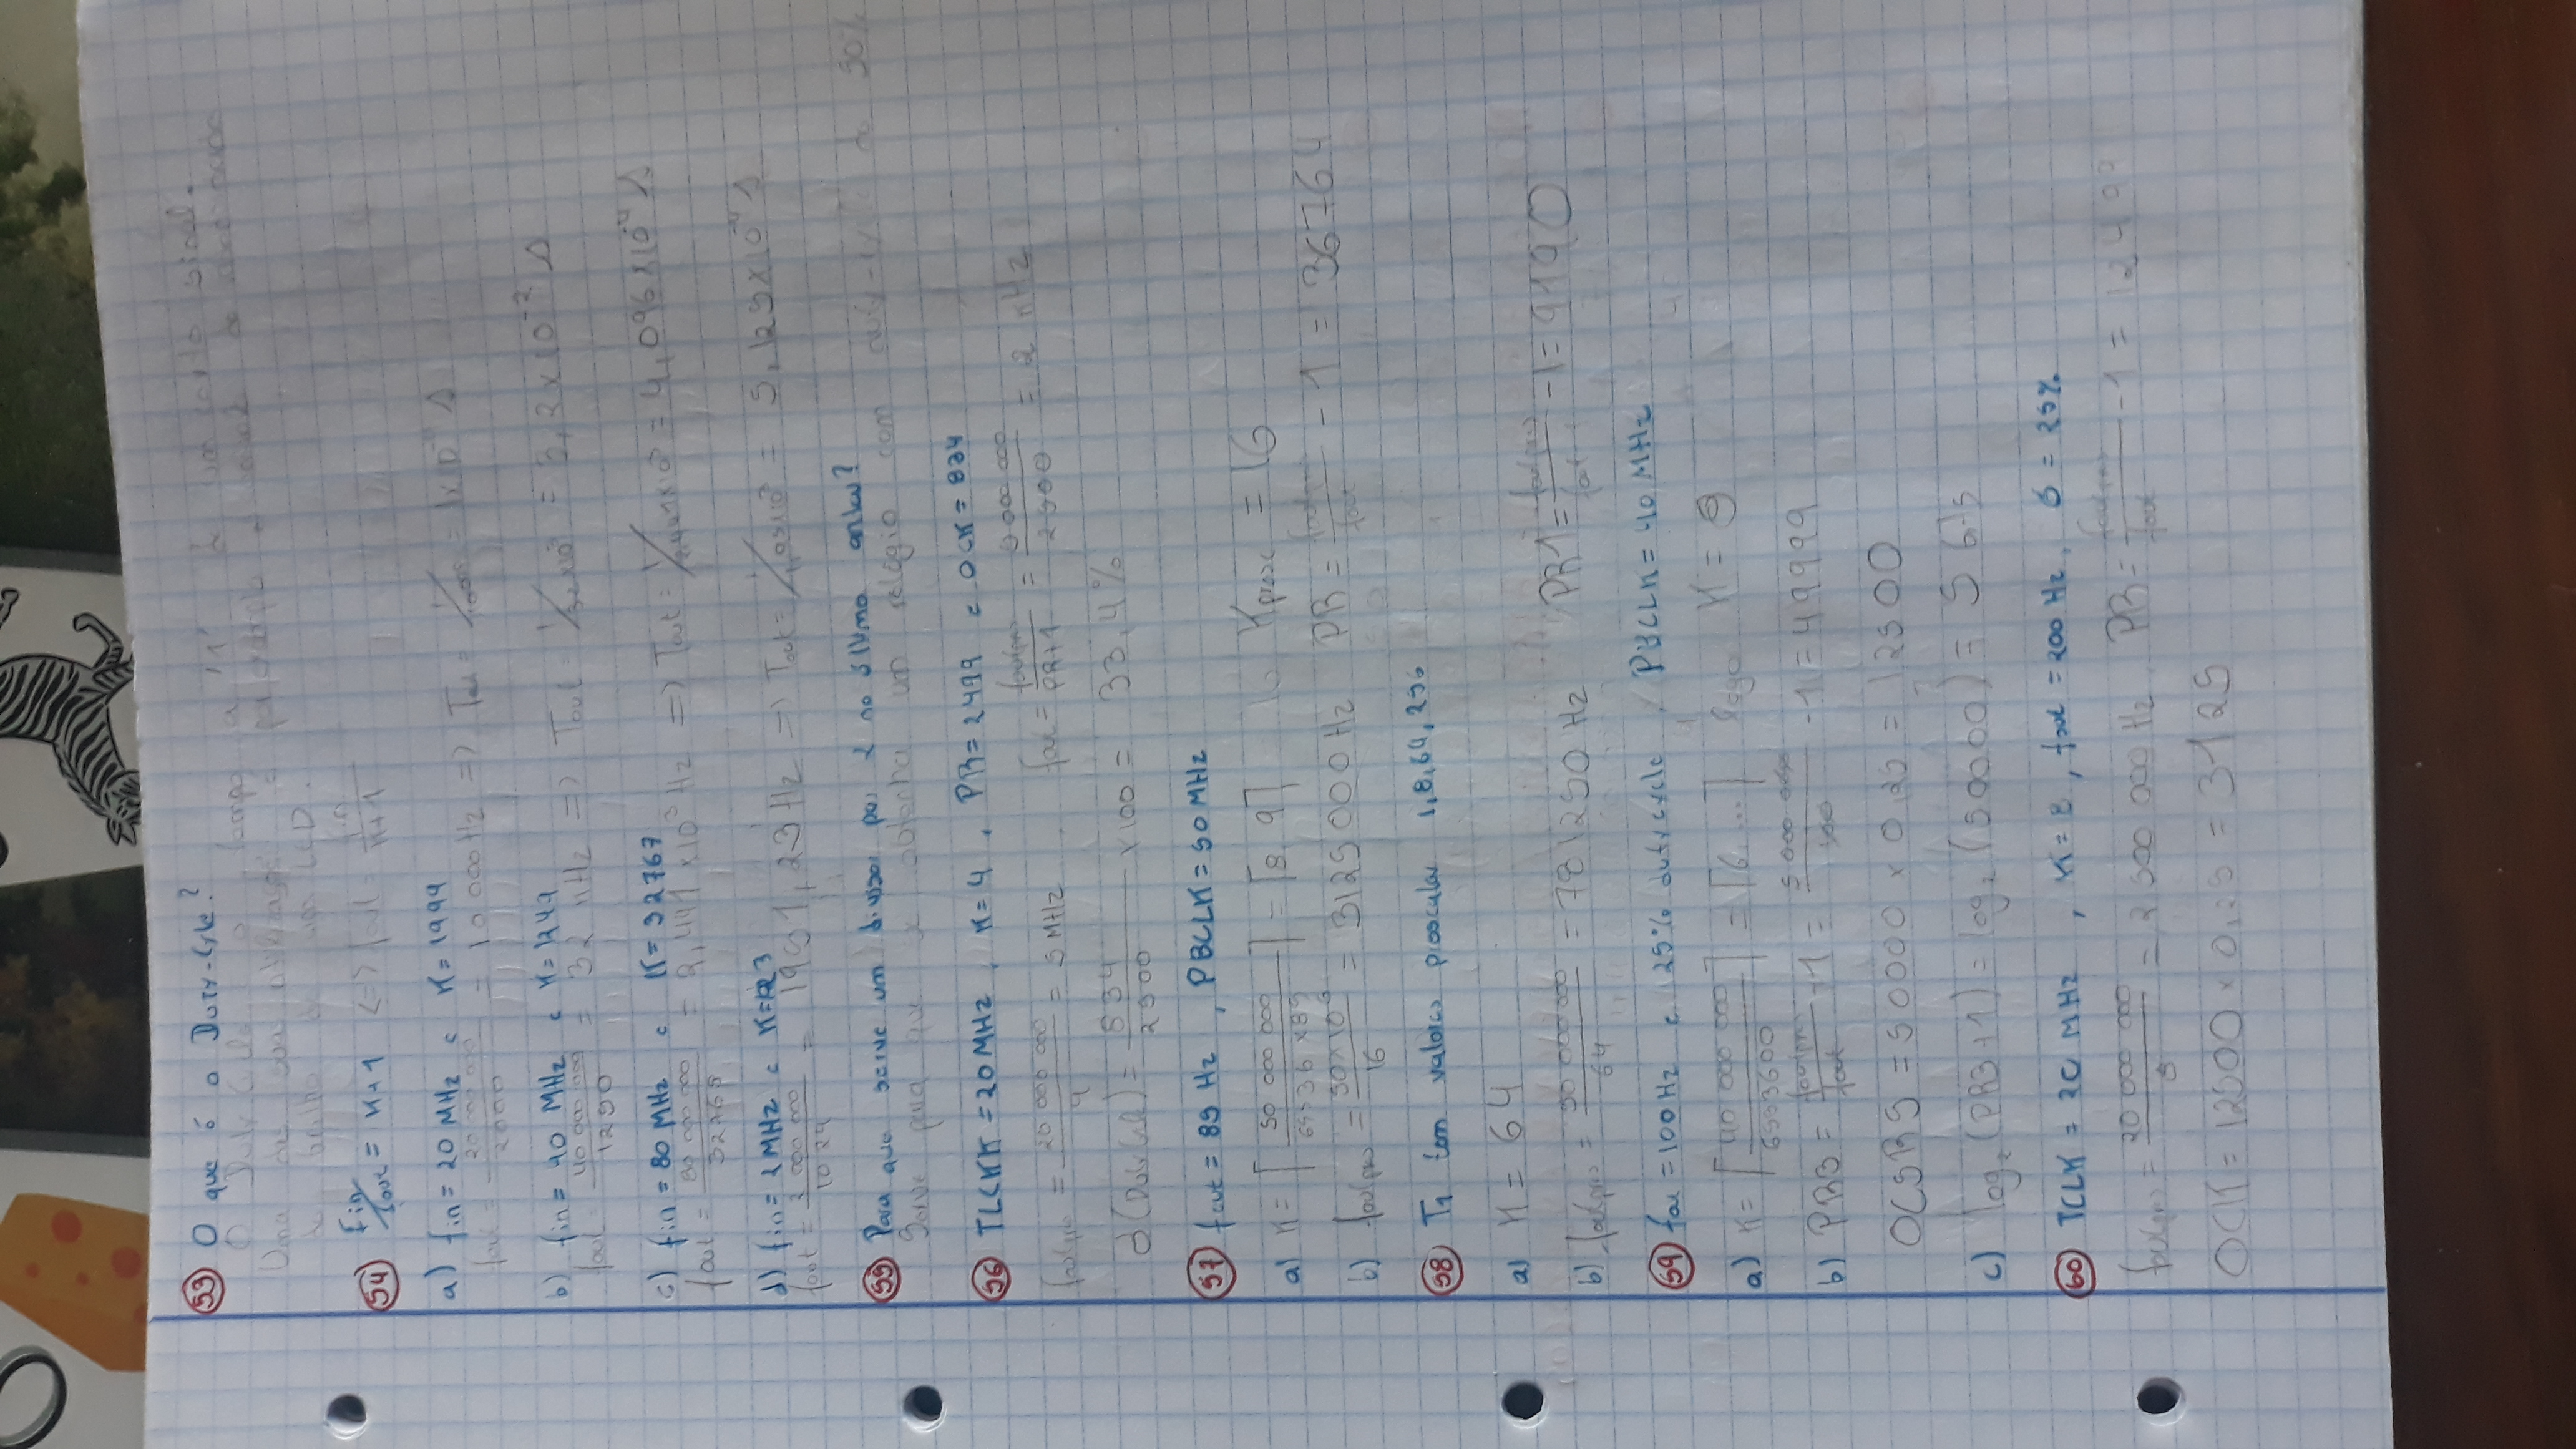 53 O que é o Duty-Cycle?
O Duty Cycle é o tempo a '1' de um certo sinal.
Uma das suas utilizações é por exemplo o
do brilho de um LCD.
54 Fin/fout = K+1 <=> fout = fin/K+1
a) fin = 20 MHz e K = 1999
fout = 20 000 000/2000 = 10 000 Hz => Tout = 1/10000 = 1x10 s
b) fin = 40 MHz e K = 1249
fout = 40 000 000/1250 = 32 KHz => Tout = 1/32x10³ = 3,2x10⁻² s
c) fin = 80 MHz e K = 32767
fout = 80 000 000/32768 = 2,441 x10³ Hz => Tout = 1/2,441x10³ = 4,096x10⁻⁴ s
d) fin = 2 MHz e K=1023
fout = 2 000 000/1024 = 1951,23 Hz => Tout = 1/1,95x10³ = 5,125x10⁻⁴ s
55 Para que serve um divisor por 2 no sistema anterior?
Serve para que se obtenha um relógio com duty-cycle de 50%
56 TLCKK = 20 MHz, K = 4, PR = 2499 e OCK = 834
foutpre = 20 000 000/4 = 5 MHz, fout = foutpre/PR+1 = 5 000 000/2500 = 2 KHz
d(Duty Cycle) = 834/2500 x100 = 33,4%
57 fout = 85 Hz, PBCLK = 50 MHz
a) K = ⌈50 000 000/65536 x85⌉ = ⌈8,9⌉ Kpresc = 16
b) foutpre = 50x10⁶/16 = 3125000 Hz PR = foutpre/fout - 1 = 36764
58 T1 tem valores prescaler 1,8,64,256
a) K = 64
b) foutpre = 50 000 000/64 = 781250 Hz PR1 = foutpre/fout - 1 = 9190
59 fout = 100 Hz e 25% duty cycle, PBCLK = 40 MHz
a) K = ⌈40 000 000/6553600⌉ = ⌈6,...⌉ logo K = 8
b) PR3 = foutpre/fout - 1 = 5 000 000/100 - 1 = 49999
OC5RS = 50000 x 0,25 = 12500
c) log₂(PR3+1) = log₂(50000) = 5 bits
60 TCLK = 20 MHz, K = 8, fout = 200 Hz, δ = 25%
foutpre = 20 000 000/8 = 2 500 000 Hz, PR = foutpre/fout - 1 = 12499
OCK = 12500 x 0,25 = 3125